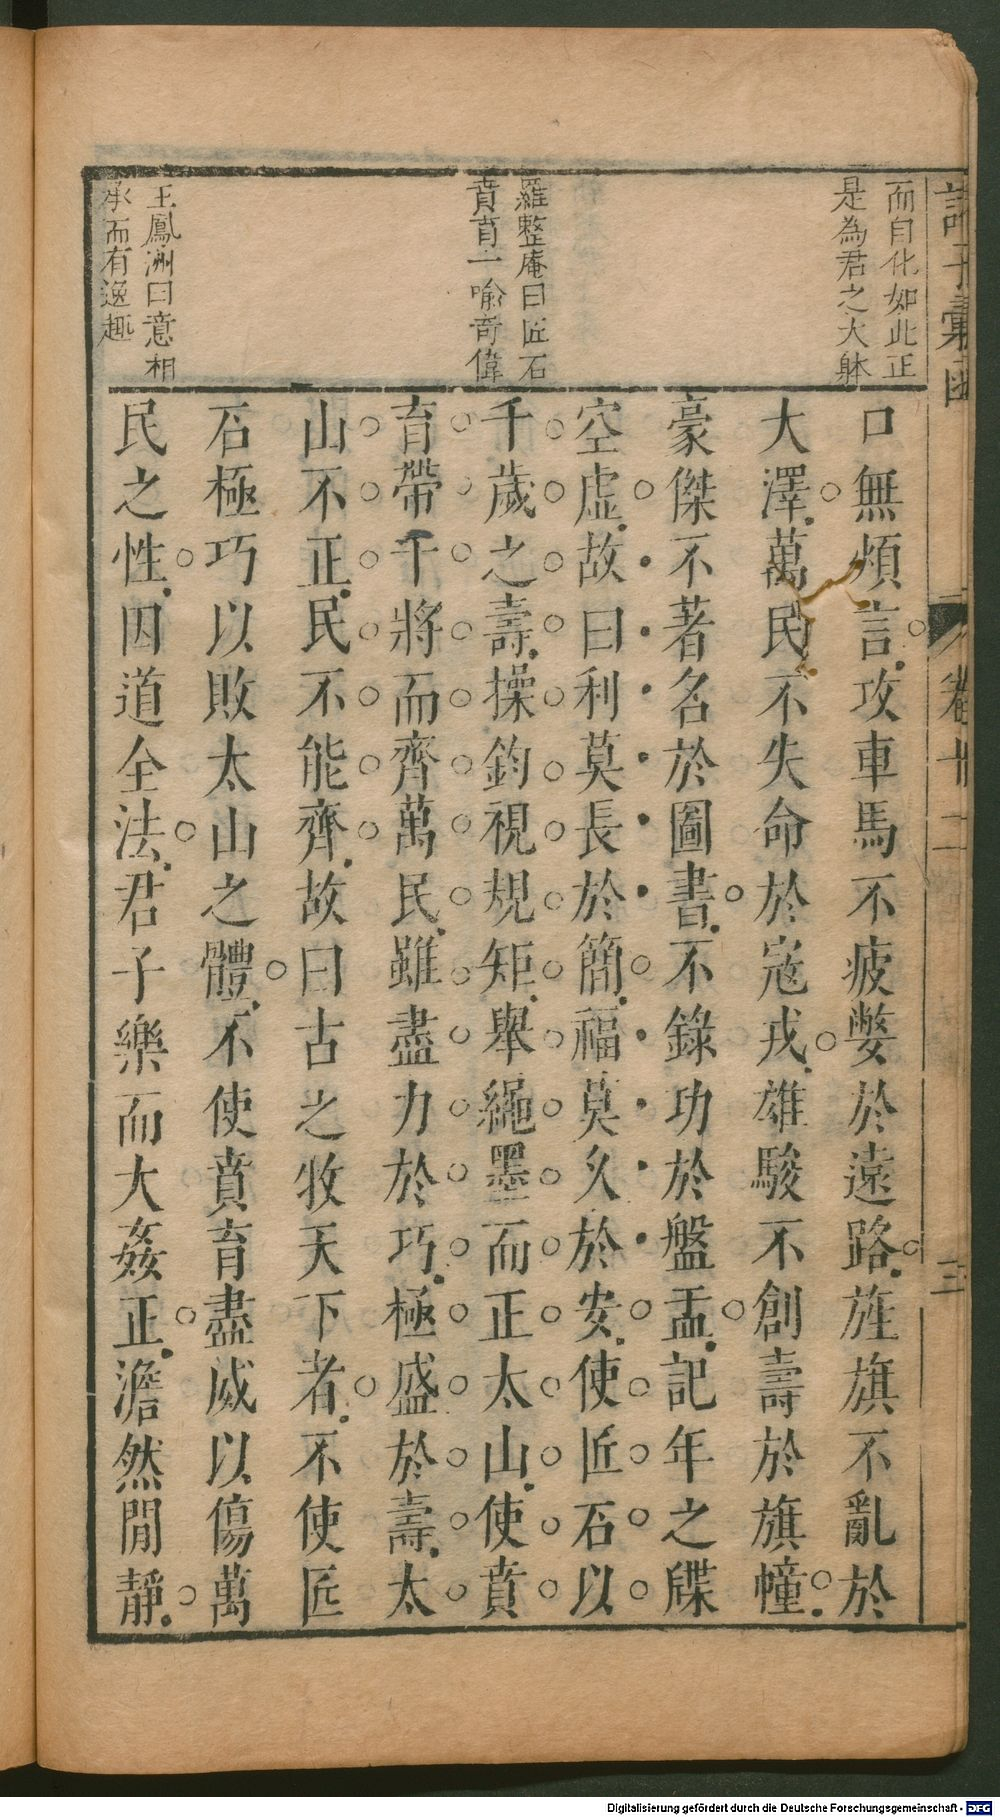 諸子彙函
卷十二
三
而自化如此正
是為君之大躰
羅整庵曰匠石
賁育一喻奇偉
王鳳洲曰意相
承而有逸趣
口無煩言攻車馬不疲獘於遠路旌旗不亂於
大澤萬民不失命於寇戎雄駿不創壽於旗幢
豪傑不著名於圖書不錄功於盤盂記年之牒
空虛故曰利莫長於簡福莫久於安使匠石以
千歲之壽操鈞視規矩舉繩墨而正太山使賁
育帶干將而齊萬民雖盡力於巧極盛於壽太
山不正民不能齊故曰古之牧天下者不使匠
石極巧以敗太山之體不使賁育盡威以傷萬
民之性因道全法君子樂而大姦正澹然閒靜
Digitalisierung gefördert durch die Deutsche Forschungsgemeinschaft - DFG